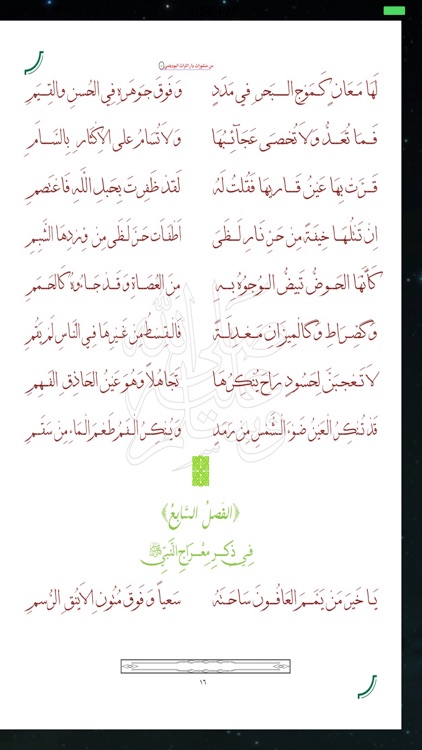 من منشورات دار التراث البوديلمي
لَهَا مَعَانٍ كَمَوْجِ الْبَحْرِ فِي مَدَدٍ وَفَوْقَ جَوْهَرِهِ فِي الْحُسْنِ وَالْقِيَمِ
فَمَا تُعَدُّ وَلَا تُحْصَى عَجَائِبُهَا وَلَا تُسَامُ عَلَى الْإِكْثَارِ بِالسَّأَمِ
قَرَّتْ بِهَا عَيْنُ قَارِيهَا فَقُلْتُ لَهُ لَقَدْ ظَفِرْتَ بِحَبْلِ اللَّهِ فَاعْتَصِمِ
إِنْ تَتْلُهَا خِيفَةً مِنْ حَرِّ نَارِ لَظَى أَطْفَأْتَ حَرَّ لَظَى مِنْ وِرْدِهَا الشَّبِمِ
كَأَنَّهَا الْحَوْضُ تَبْيَضُّ الْوُجُوهُ بِهِ مِنَ الْعُصَاةِ وَقَدْ جَاءُوهُ كَالْحُمَمِ
وَكَصِرَاطِ وَكَالْمِيزَانِ مَعْدِلَةً فَالْقِسْطُ مِنْ غَيْرِهَا فِي النَّاسِ لَمْ يَقُمِ
لَا تَعْجَبَنْ لِحَسُودٍ رَاحَ يُنْكِرُهَا تَجَاهُلًا وَهُوَ عَيْنُ الْحَاذِقِ الْفَهِمِ
قَدْ تُنْكِرُ الْعَيْنُ ضَوْءَ الشَّمْسِ مِنْ رَمَدٍ وَيُنْكِرُ الْفَمُ طَعْمَ الْمَاءِ مِنْ سَقَمِ
﴿الْفَصْلُ السَّابِعُ﴾
فِي ذِكْرِ مِعْرَاجِ النَّبِيِّ ﷺ
يَا خَيْرَ مَنْ يَمَّمَ الْعَافُونَ سَاحَتَهُ سَعْيًا وَفَوْقَ مُتُونِ الْأَيْنُقِ الرُّسُمِ
١٦